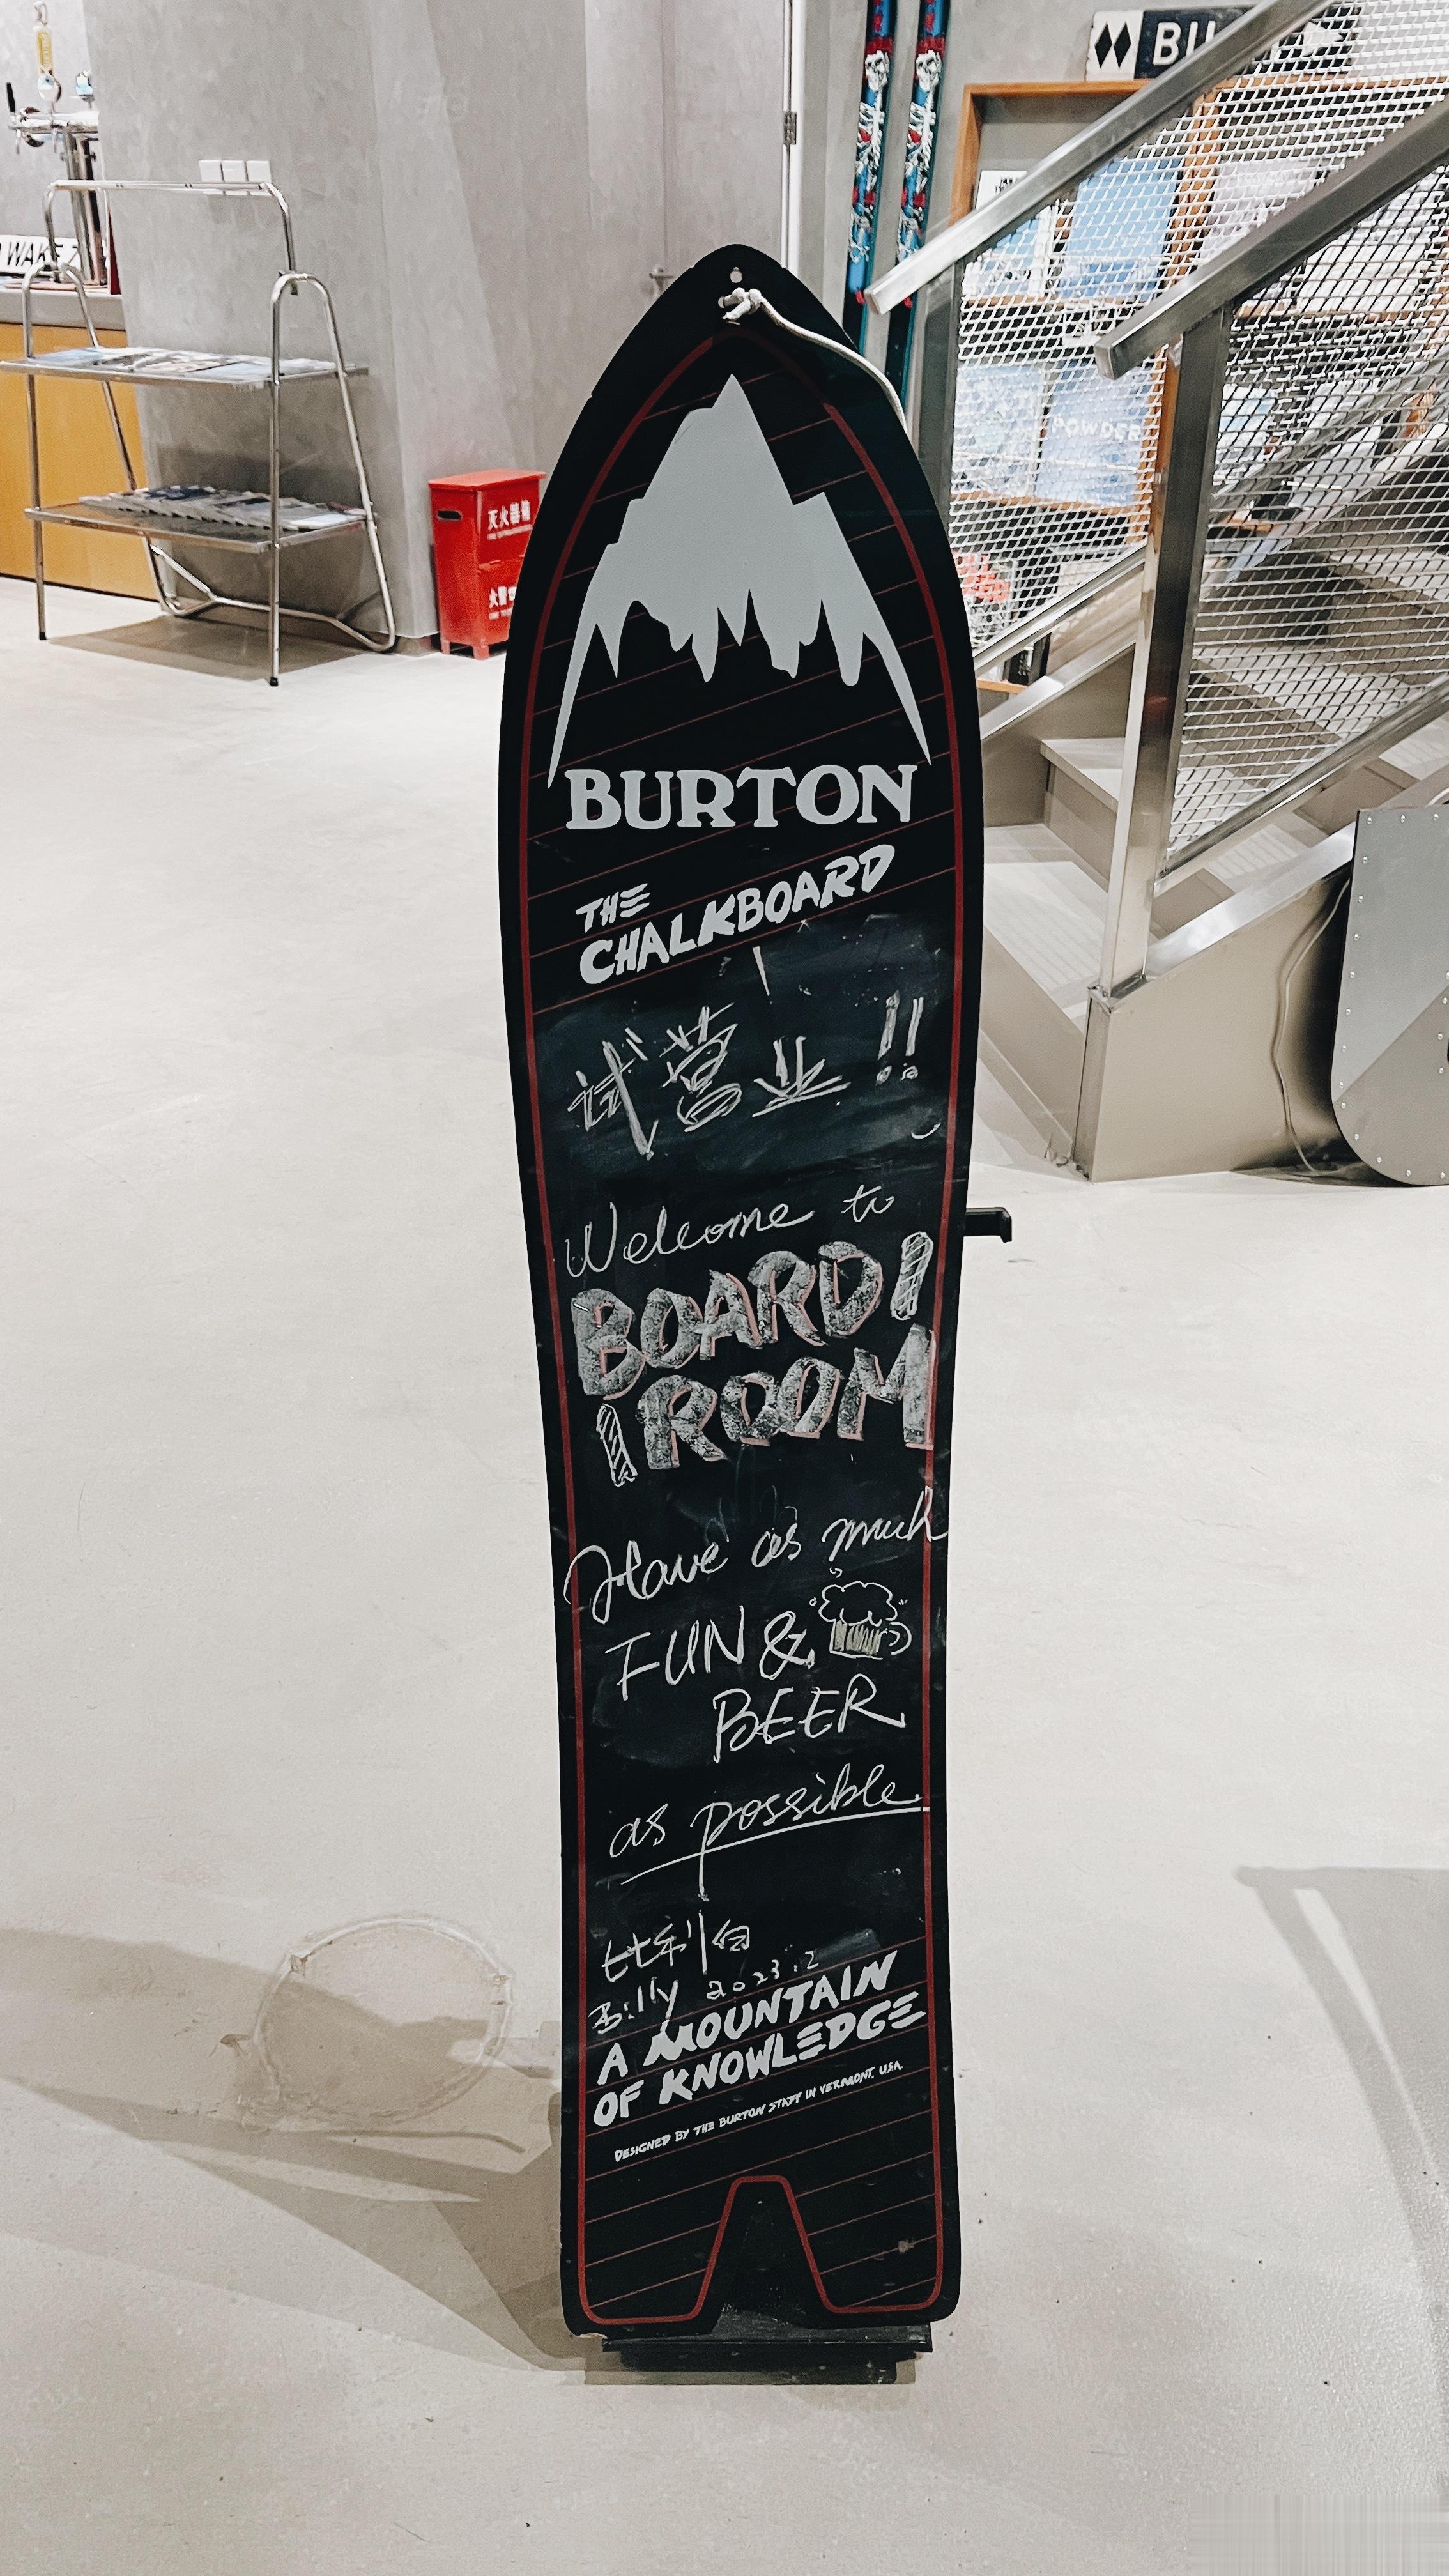 BURTON
THE
CHALKBOARD
试营业!!
Welcome to
BOARD
ROOM
Have as much
FUN &
BEER
as possible
比利白
Billy 2023.2
A MOUNTAIN
OF KNOWLEDGE
DESIGNED BY THE BURTON STAFF IN VERMONT, USA
灭火器箱
POWDER